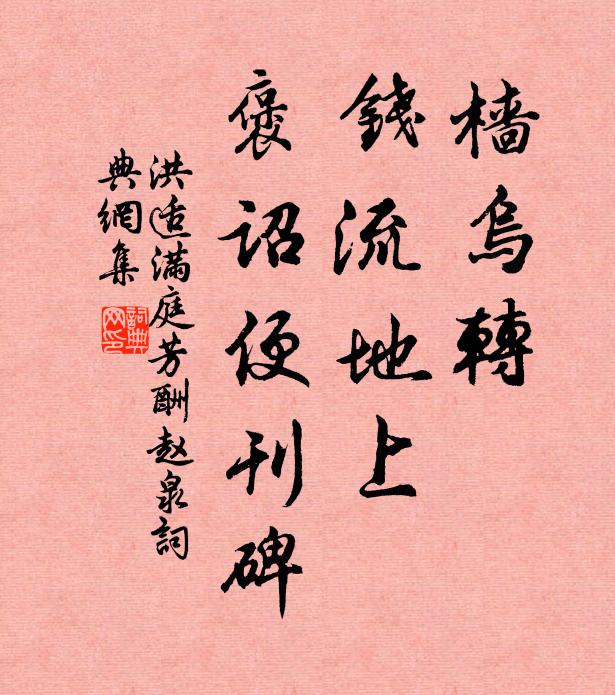 檣烏轉
錢流地上
褒詔便刊碑
洪适滿庭芳酬赵泉詞
典網集
詞典
网印